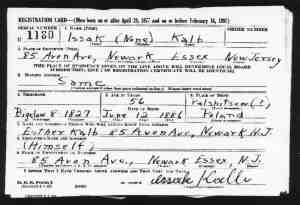 REGISTRATION CARD—(Men born on or after April 28, 1877 and on or before February 16, 1897)
SERIAL NUMBER
1. NAME (Print)
ORDER NUMBER
U 1180
Issak (None) Kalb
2. PLACE OF RESIDENCE (Print)
85 Avon Ave, Newark Essex New Jersey
THE PLACE OF RESIDENCE GIVEN ON THE LINE ABOVE WILL DETERMINE LOCAL BOARD
JURISDICTION; LINE 2 OF REGISTRATION CERTIFICATE WILL BE IDENTICAL
3. MAILING ADDRESS
Same
4. TELEPHONE
5. AGE IN YEARS
6. PLACE OF BIRTH
56
DATE OF BIRTH
Bigelow 8 1827
June 12 1886
Poland
7. NAME AND ADDRESS OF PERSON WHO WILL ALWAYS KNOW YOUR ADDRESS
Esther Kalb 85 Avon Ave, Newark N.J.
8. EMPLOYER'S NAME AND ADDRESS
(Himself)
9. PLACE OF EMPLOYMENT OR BUSINESS
85 Avon Ave, Newark Essex, N.J.
I AFFIRM THAT I HAVE VERIFIED ABOVE ANSWERS AND THAT THEY ARE TRUE.